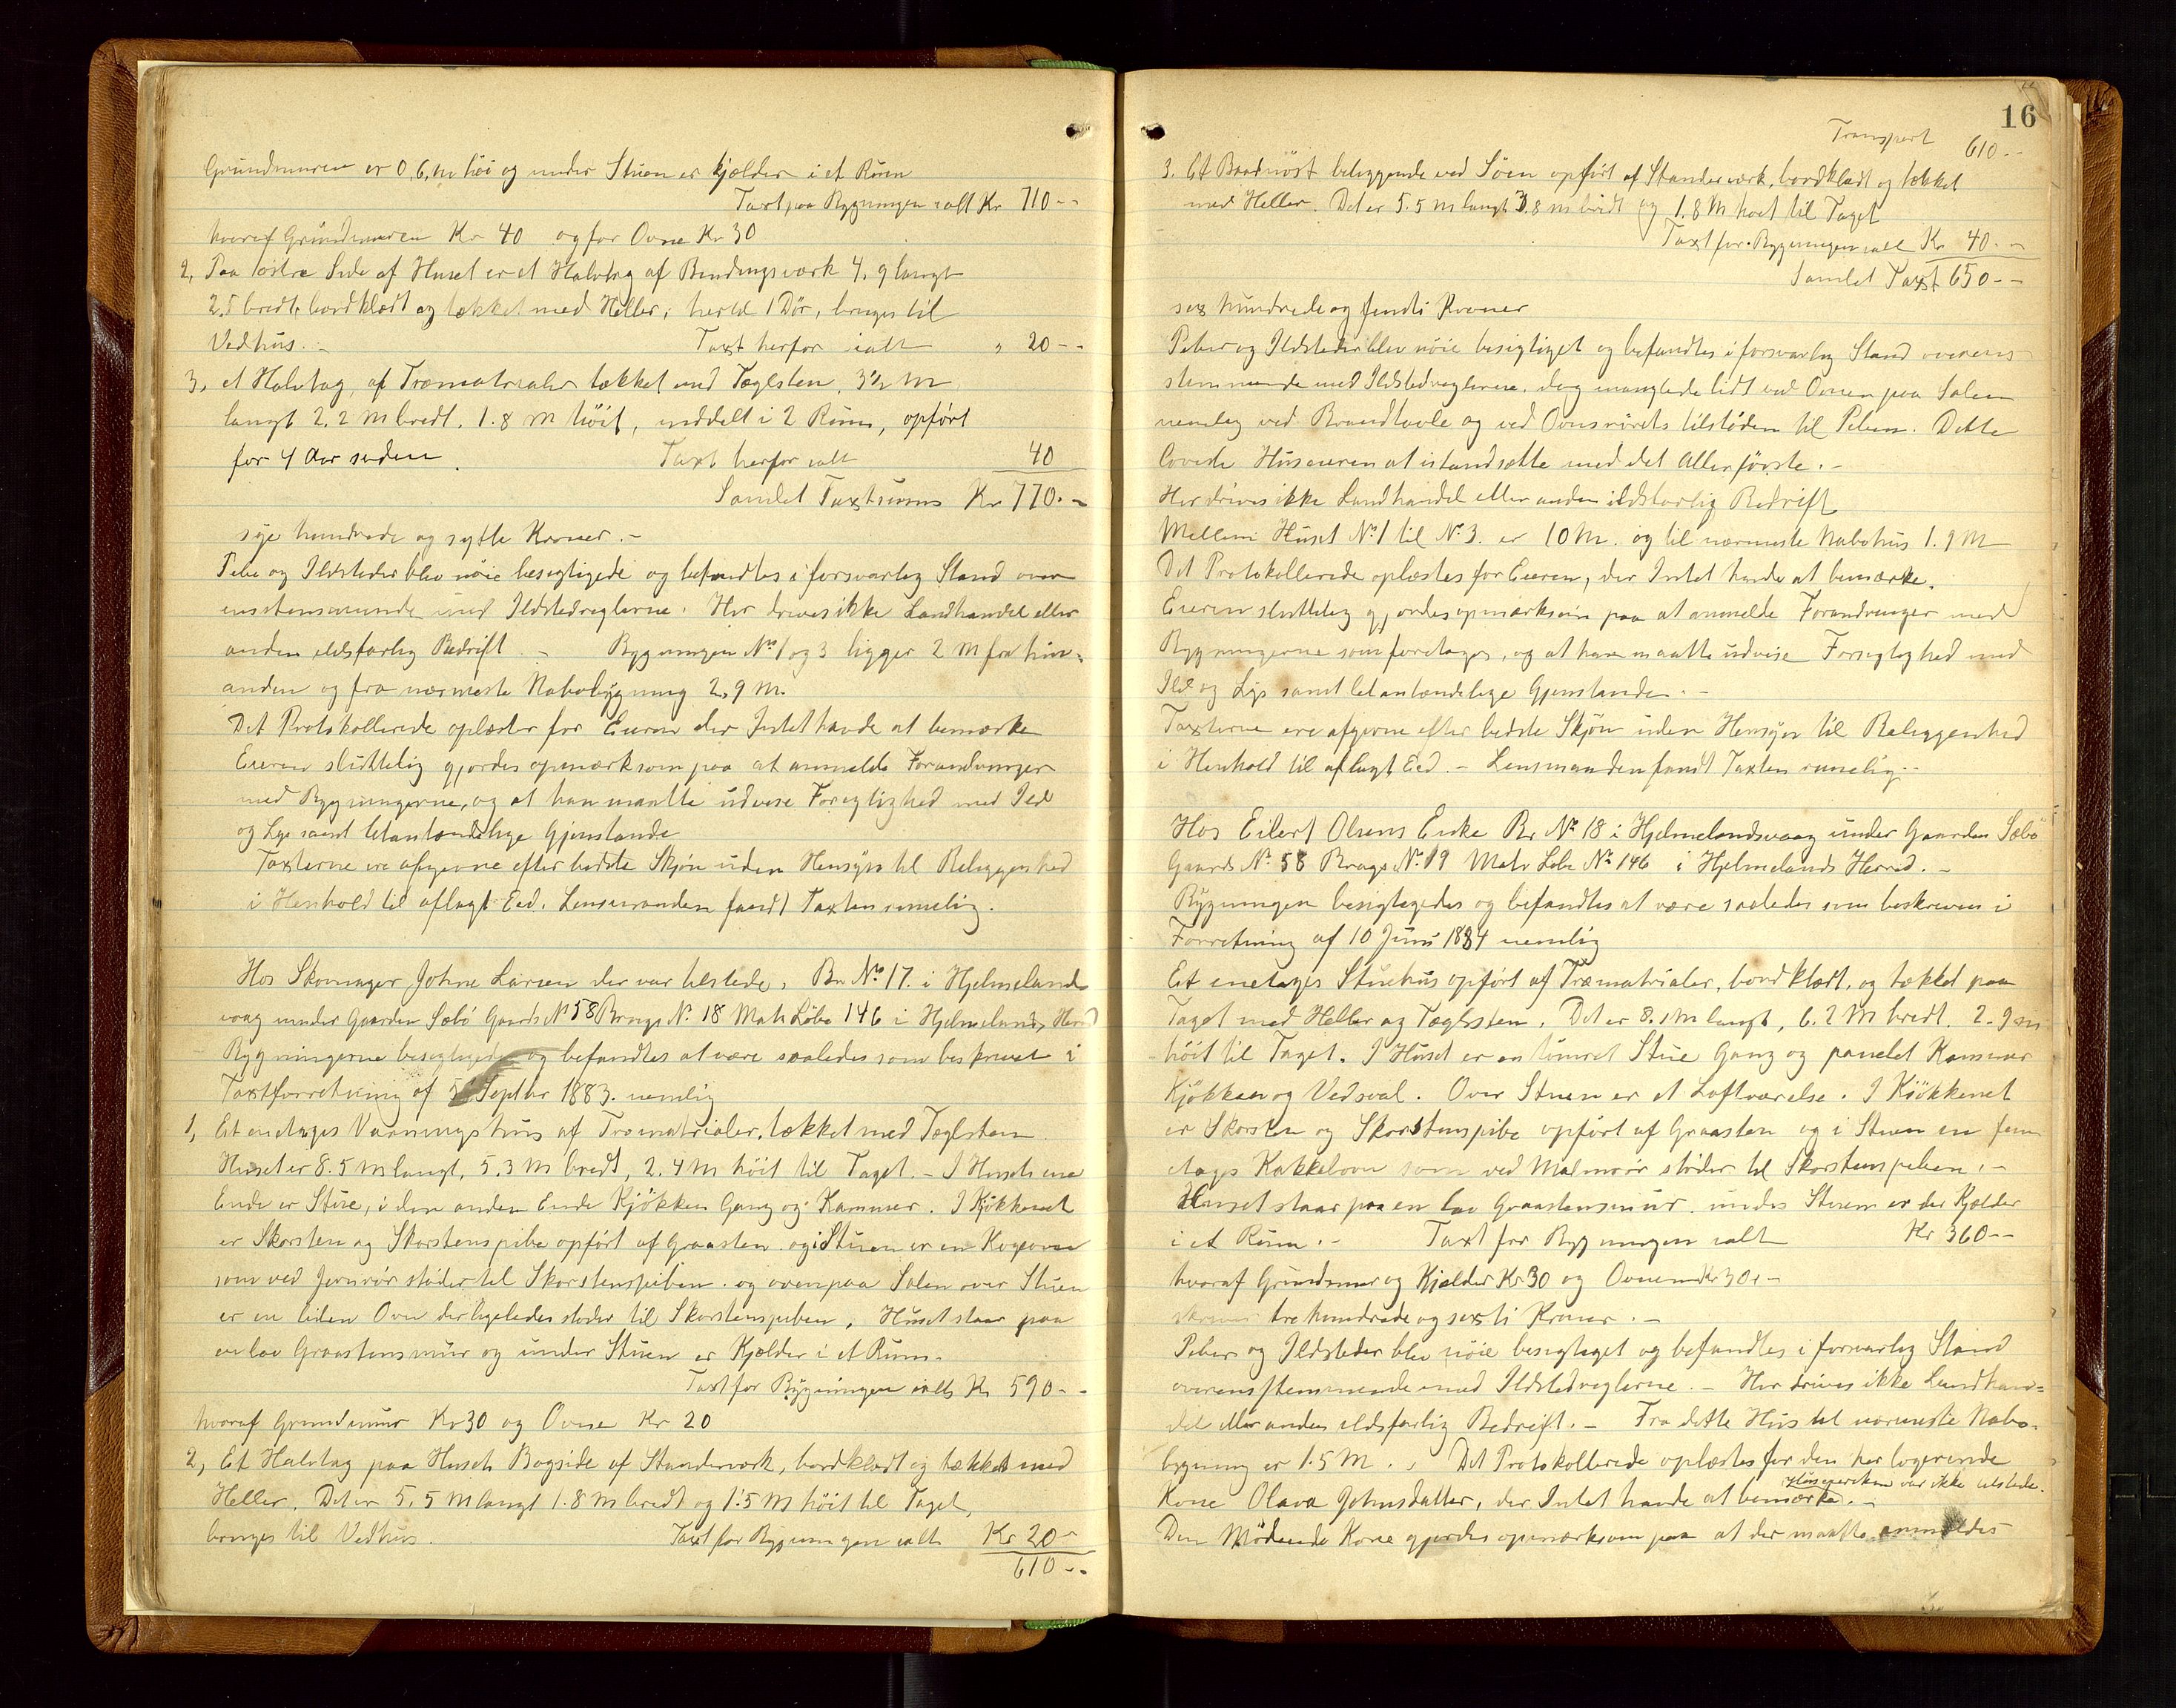 Grundmuren er 0,6 m høi og under Stuen er kjælder i et Rum
Taxt paa Bygningen ialt Kr 710--
hvoraf Grundmuren Kr 40 og for Ovne Kr 30
2, Paa østre Side af Huset er et Halvtag af Bindingsværk 4,9 langt
2.5 bredt, bordklædt og tækket med Heller, hertil 1 Dør, bruges til
Vedhus.- Taxt herfor ialt " 20--
3, et Halvtag af Træmaterialer tækket med Taglsten, 3½ M
langt 2.2 M bredt. 1.8 M høit, inddelt i 2 Rum, opført
for 4 Aar siden. Taxt herfor ialt 40
Samlet Taxtsum Kr 770.-
syv hundrede og sytti Kroner.-
Piber og Ildsteder blev nøie besigtigede og befandtes i forsvarlig Stand over
ensstemmende med Ildstedreglerne. Her drives ikke Landhandel eller
anden ildsfarlig Bedrift.- Bygningen No 1 og 3 ligger 2 M fra hin-
anden og fra nærmeste Nabobygning 2,9 M.
Det Protokollerede oplæstes for Eieren der Intet havde at bemærke
Eieren sluttelig gjordes opmærksom paa at anmelde Forandringer
med Bygningerne, og at han maatte udvise Forsigtighed med Ild
og Lys samt letantændelige Gjenstande
Taxterne ere afgivne efter bedste Skjøn uden Hensyn til Beliggenhed
i Henhold til aflagt Eed. Lensmanden fandt Taxten rimelig.
Hos Skomager Johne Larsen der var tilstede, Br No 17. i Hjelmelands
vaag under Gaarden Sæbø Gaards No 58 Brugs No 18 Matr Løbe 146 i Hjelmelands Herred
Bygningerne besigtigedes og befandtes at være saaledes som beskrevet i
Taxtforretning af 5 Septbr 1883. nemlig
1, Et enetages Vaaningshus af Træmaterialer, tækket med Taglsten
Huset er 8.5 M langt, 5.3 M bredt, 2.4 M høit til Taget.- I Husets ene
Ende er Stue, i den anden Ende Kjøkken Gang og Kammer. I Kjøkkenet
er Skorsten og Skorstenspibe opført af Graasten. og i Stuen er en Kogeovn
som ved Jernrør støder til Skorstenspiben. og ovenpaa Salen over Stuen
er en liden Ovn der ligeledes støder til Skorstenspiben, Huset staar paa
en lav Graastensmur og under Stuen er Kjælder i et Rum.
Taxt for Bygningen ialt Kr 590--
hvoraf Grundmur Kr 30 og Ovne Kr 20
2, Et Halvtag paa Husets Bagside af Standerværk, bordklædt og tækket med
Heller. Det er 5,5 M langt 1.8 M bredt og 1.5 M høit til Taget,
bruges til Vedhus. Taxt for Bygningen ialt Kr 20-
610--
16
Transport 610--
3. Et Baadnøst beliggende ved Søen opført af Standerværk, bordklædt og tækket
med Heller. Det er 5.5 M langt 3.8 M bredt og 1.8 M høit til Taget
Taxt for Bygningen ialt Kr 40.-
Samlet Taxt 650--
sex hundrede og femti Kroner
Piber og Ildsteder blev nøie besigtiget og befandtes i forsvarlig Stand overens-
stemmende med Ildstedreglerne. dog manglede lidt ved Ovnen paa Salen
nemlig ved Brandtavle og ved Ovnsrørets tilstøden til Piben. Dette
lovede Huseieren at istandsætte med det Allerførste.-
Her drives ikke Landhandel eller anden ildsfarlig Bedrift
Mellem Huset No 1 til No 3. er 10 M. og til nærmeste Nabohus 1.9 M
Det Protokollerede oplæstes for Eieren, der Intet havde at bemærke.
Eieren sluttelig gjordes opmærksom paa at anmelde Forandringer med
Bygningerne som foretages, og at han maatte udvise Forsigtighed med
Ild og Lys samt letantændelige Gjenstande.-
Taxterne ere afgivne efter bedste Skjøn uden Hensyn til Beliggenhed
i Henhold til aflagt Eed.- Lensmanden fandt Taxten rimelig.-
Hos Eilert Olsens Enke Br No 18 i Hjelmelandsvaag under Gaarden Sæbø
Gaards No 58 Brugs No 19 Matr Løbe No 146 i Hjelmelands Herred.-
Bygningen besigtigedes og befandtes at være saaledes som beskreven i
Forretning af 10 Juni 1884 nemlig
Et enetages Stuehus opført af Træmaterialer, bordklædt, og tækket paa
Taget med Heller og Taglsten. Det er 8.1 M langt, 6.2 M bredt. 2.9 m
høit til Taget. I Huset er en tømret Stue Gang og panelet Kammer
Kjøkken og Vedsval. Over Stuen er et Loftværelse. I Kjøkkenet
er Skorsten og Skorstenspibe opført af Graasten og i Stuen en fem
etages Kakkelovn som ved Malmrør støder til Skorstenspiben.-
Huset staar paa en lav Graastensmur. under Stuen er der Kjælder
i et Rum.- Taxt for Bygningen ialt Kr 360--
hvoraf Grundmur og Kjælder Kr 30 og Ovnen Kr 30.-
skriver tre hundrede og sexti Kroner.-
Piber og Ildsteder blev nøie besigtiget og befandtes i forsvarlig Stand
overensstemmende med Ildstedreglerne.- Her drives ikke Landhan-
del eller anden ildsfarlig Bedrift.- Fra dette Hus til nærmeste Nabo-
bygning er 1.5 M. Det Protokollerede oplæstes for den her logerende
Kone Olava Johnsdatter, der Intet havde at bemærke. Huseiersken var ikke tilstede.
Den Mødende Kone gjordes opmærksom paa at der maatte anmeldes